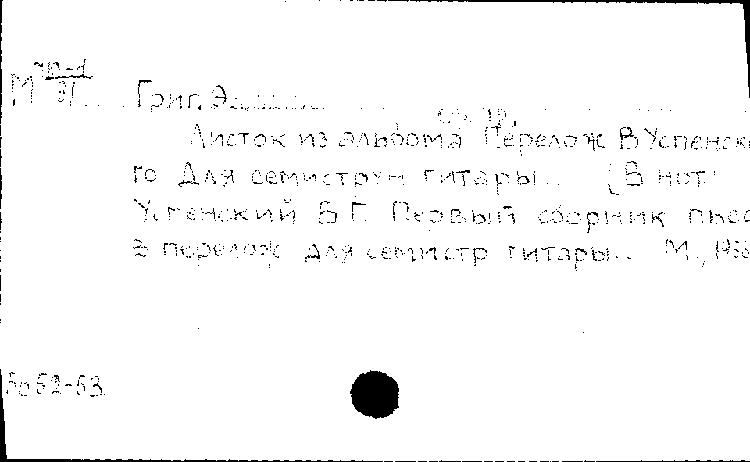 М
31
Григ. Э.
Листок из альбома Перелож В Успенско
го Для семиструн гитары.. [В нот:
Успенский В Г. Первый сборник пьес
в перелож для семистр гитары.. М.,
62-63